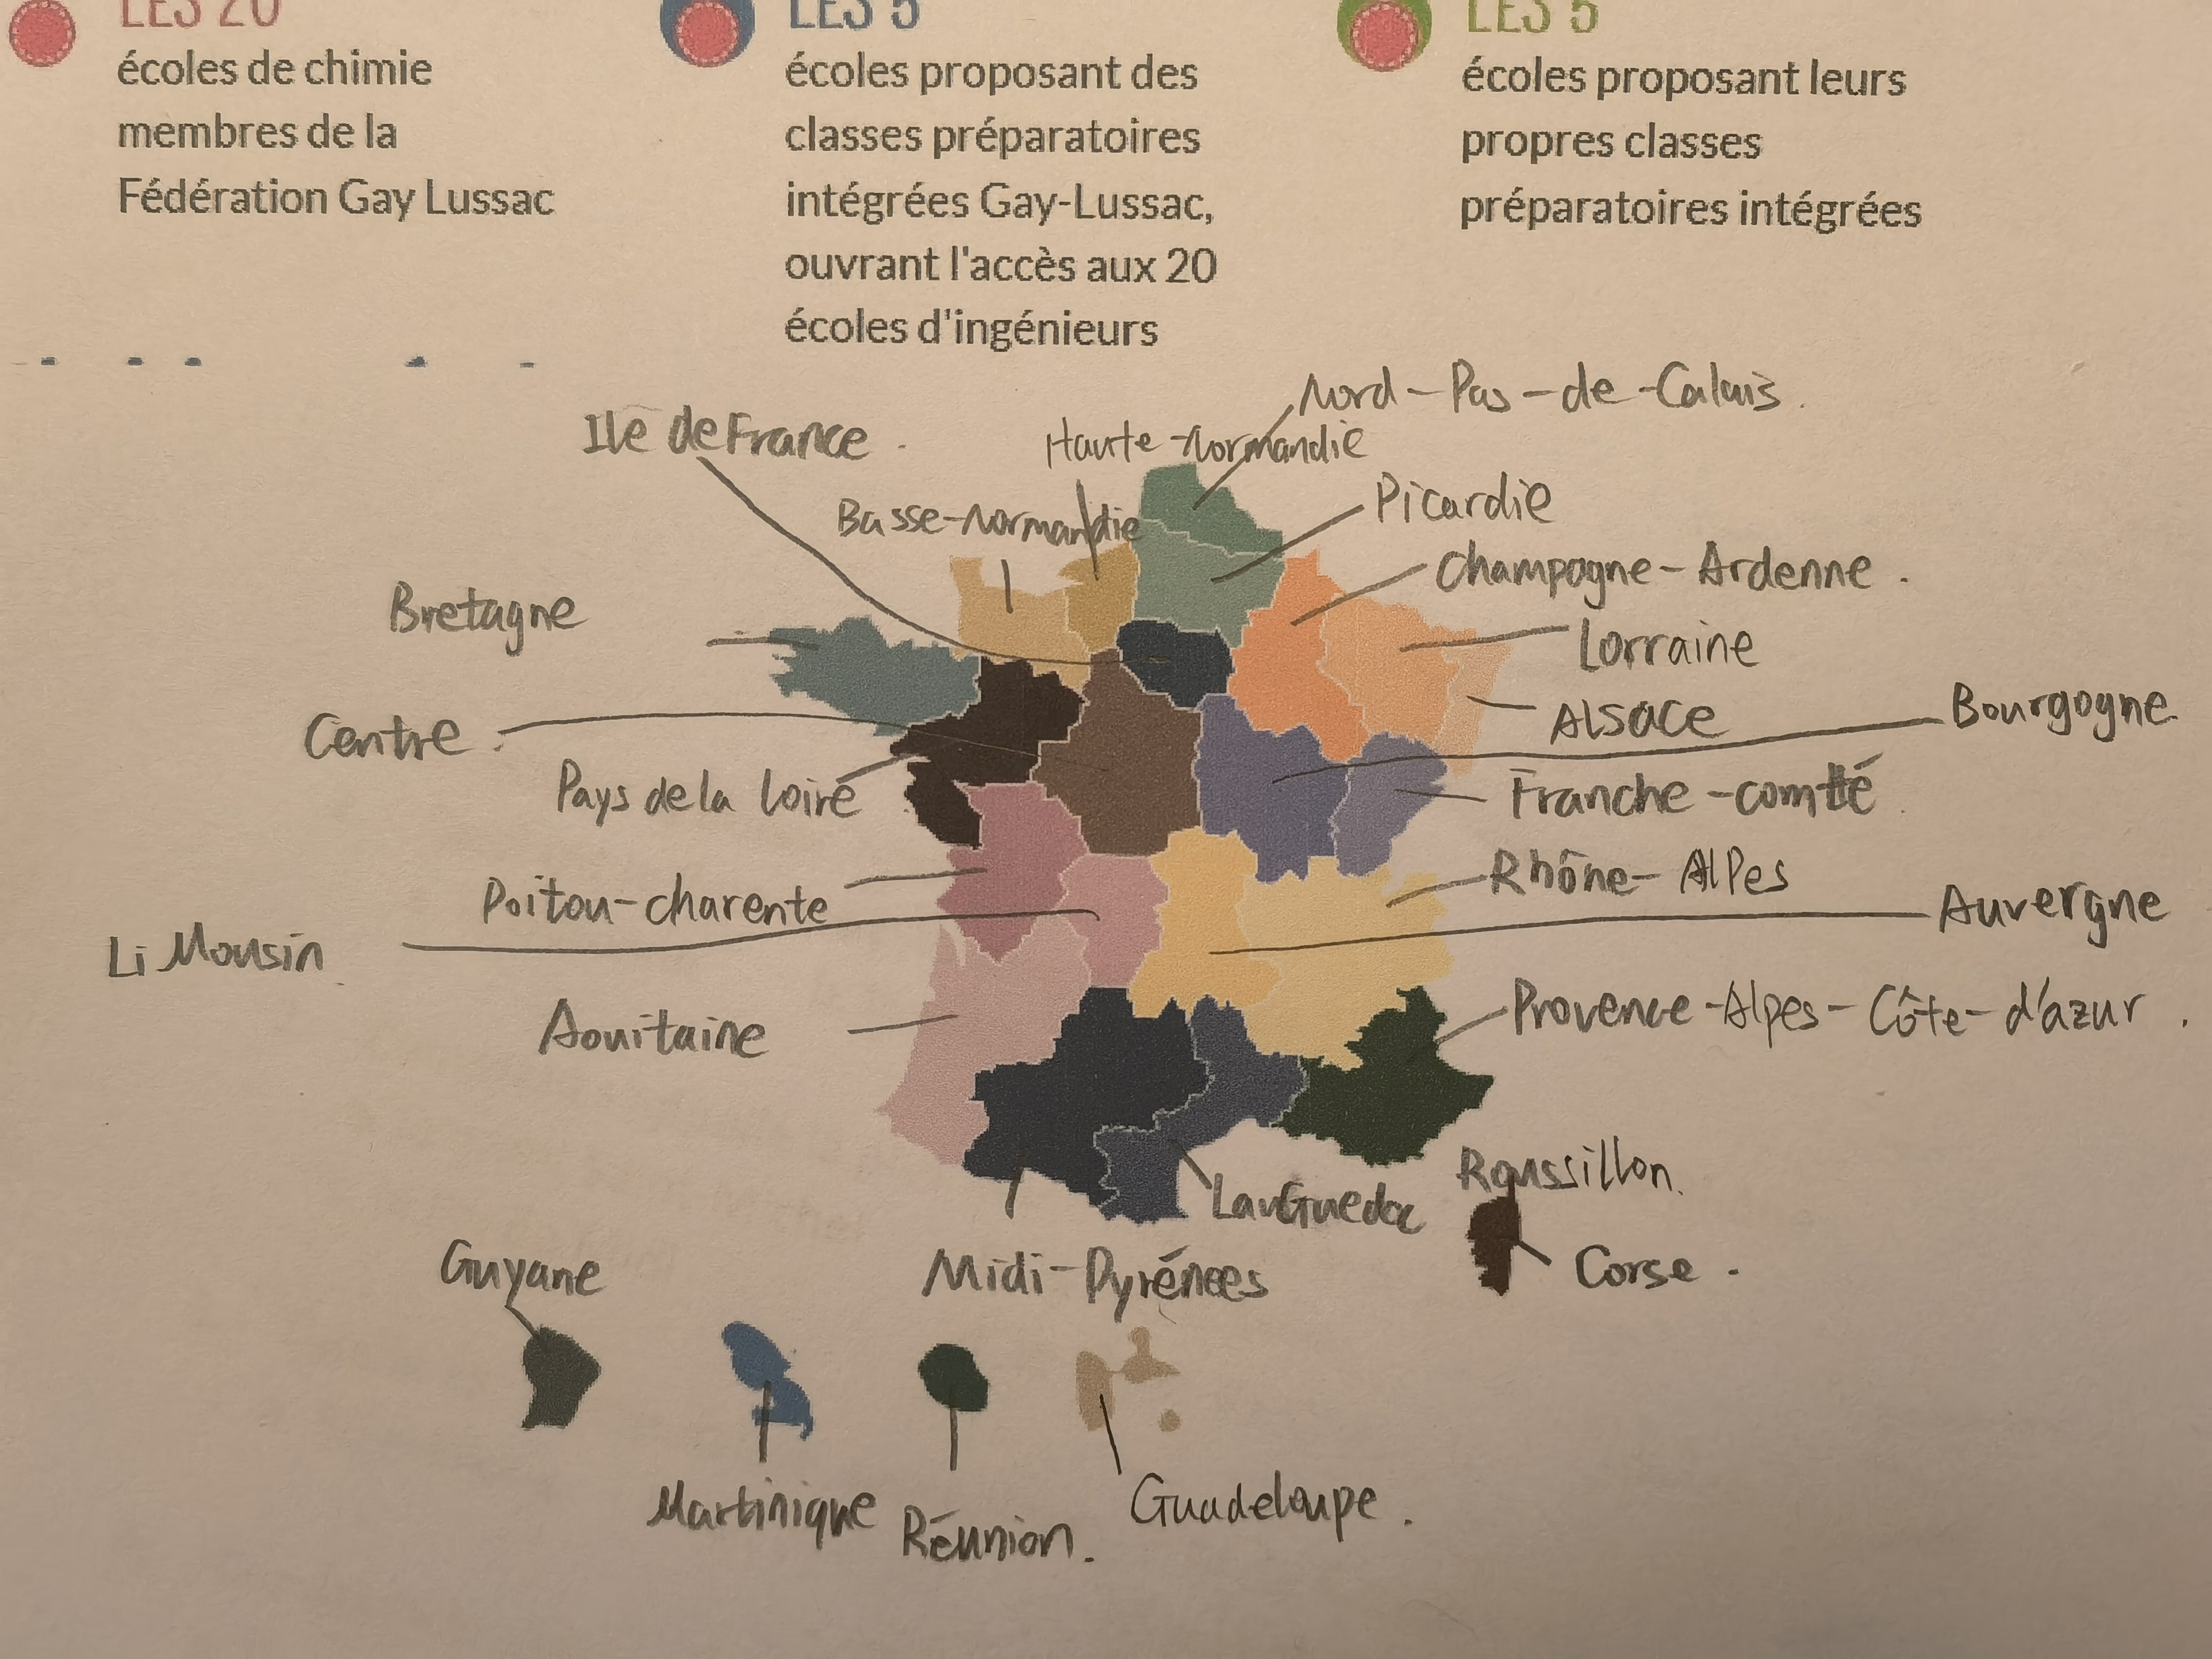 LES 20
écoles de chimie
membres de la
Fédération Gay Lussac
LES 5
écoles proposant des
classes préparatoires
intégrées Gay-Lussac,
ouvrant l'accès aux 20
écoles d'ingénieurs
LES 5
écoles proposant leurs
propres classes
préparatoires intégrées
Nord-Pas-de-Calais.
Ile de France.
Haute-Normandie
Picardie
Basse-Normandie
Champagne-Ardenne.
Bretagne
Lorraine
Alsace
Bourgogne
Centre
Pays de la loire
Franche-comté
Rhône-Alpes
Poitou-charente
Auvergne
Li Mousin
Provence-Alpes-Côte-d'azur.
Aouitaine
Roussillon.
LanGuedoc
Guyane
Midi-Pyrénées
Corse.
Martinique
Réunion.
Guadeloupe.